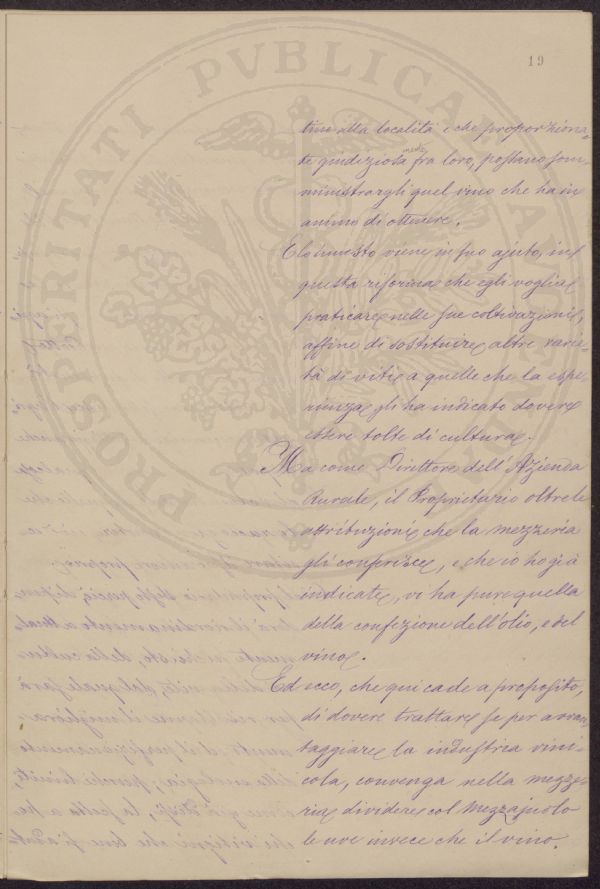 19
tine alla località e che proporziona-
te giudiziosamente fra loro, possano som-
ministrargli quel vino che ha in
animo di ottenere.
E lo innesto viene in suo ajuto, in
questa riforma che egli voglia
praticare nelle sue coltivazioni,
affine di sostituire altre varie-
tà di viti a quelle che la espe-
rienza gli ha indicato dovere
essere tolte di cultura.
Ma come Direttore dell'Azienda
Rurale, il Proprietario oltre le
attribuzioni che la mezzeria
gli conferisce, e che io ho già
indicate, vi ha pure quella
della confezione dell'olio, e del
vino.
Ed ecco, che qui cade a proposito,
di dovere trattare se per avvan-
taggiare la industria vini-
cola, convenga nella mezze-
ria dividere col Mezzajuolo
le uve invece che il vino.
PROSPERITATI PVBLICAE